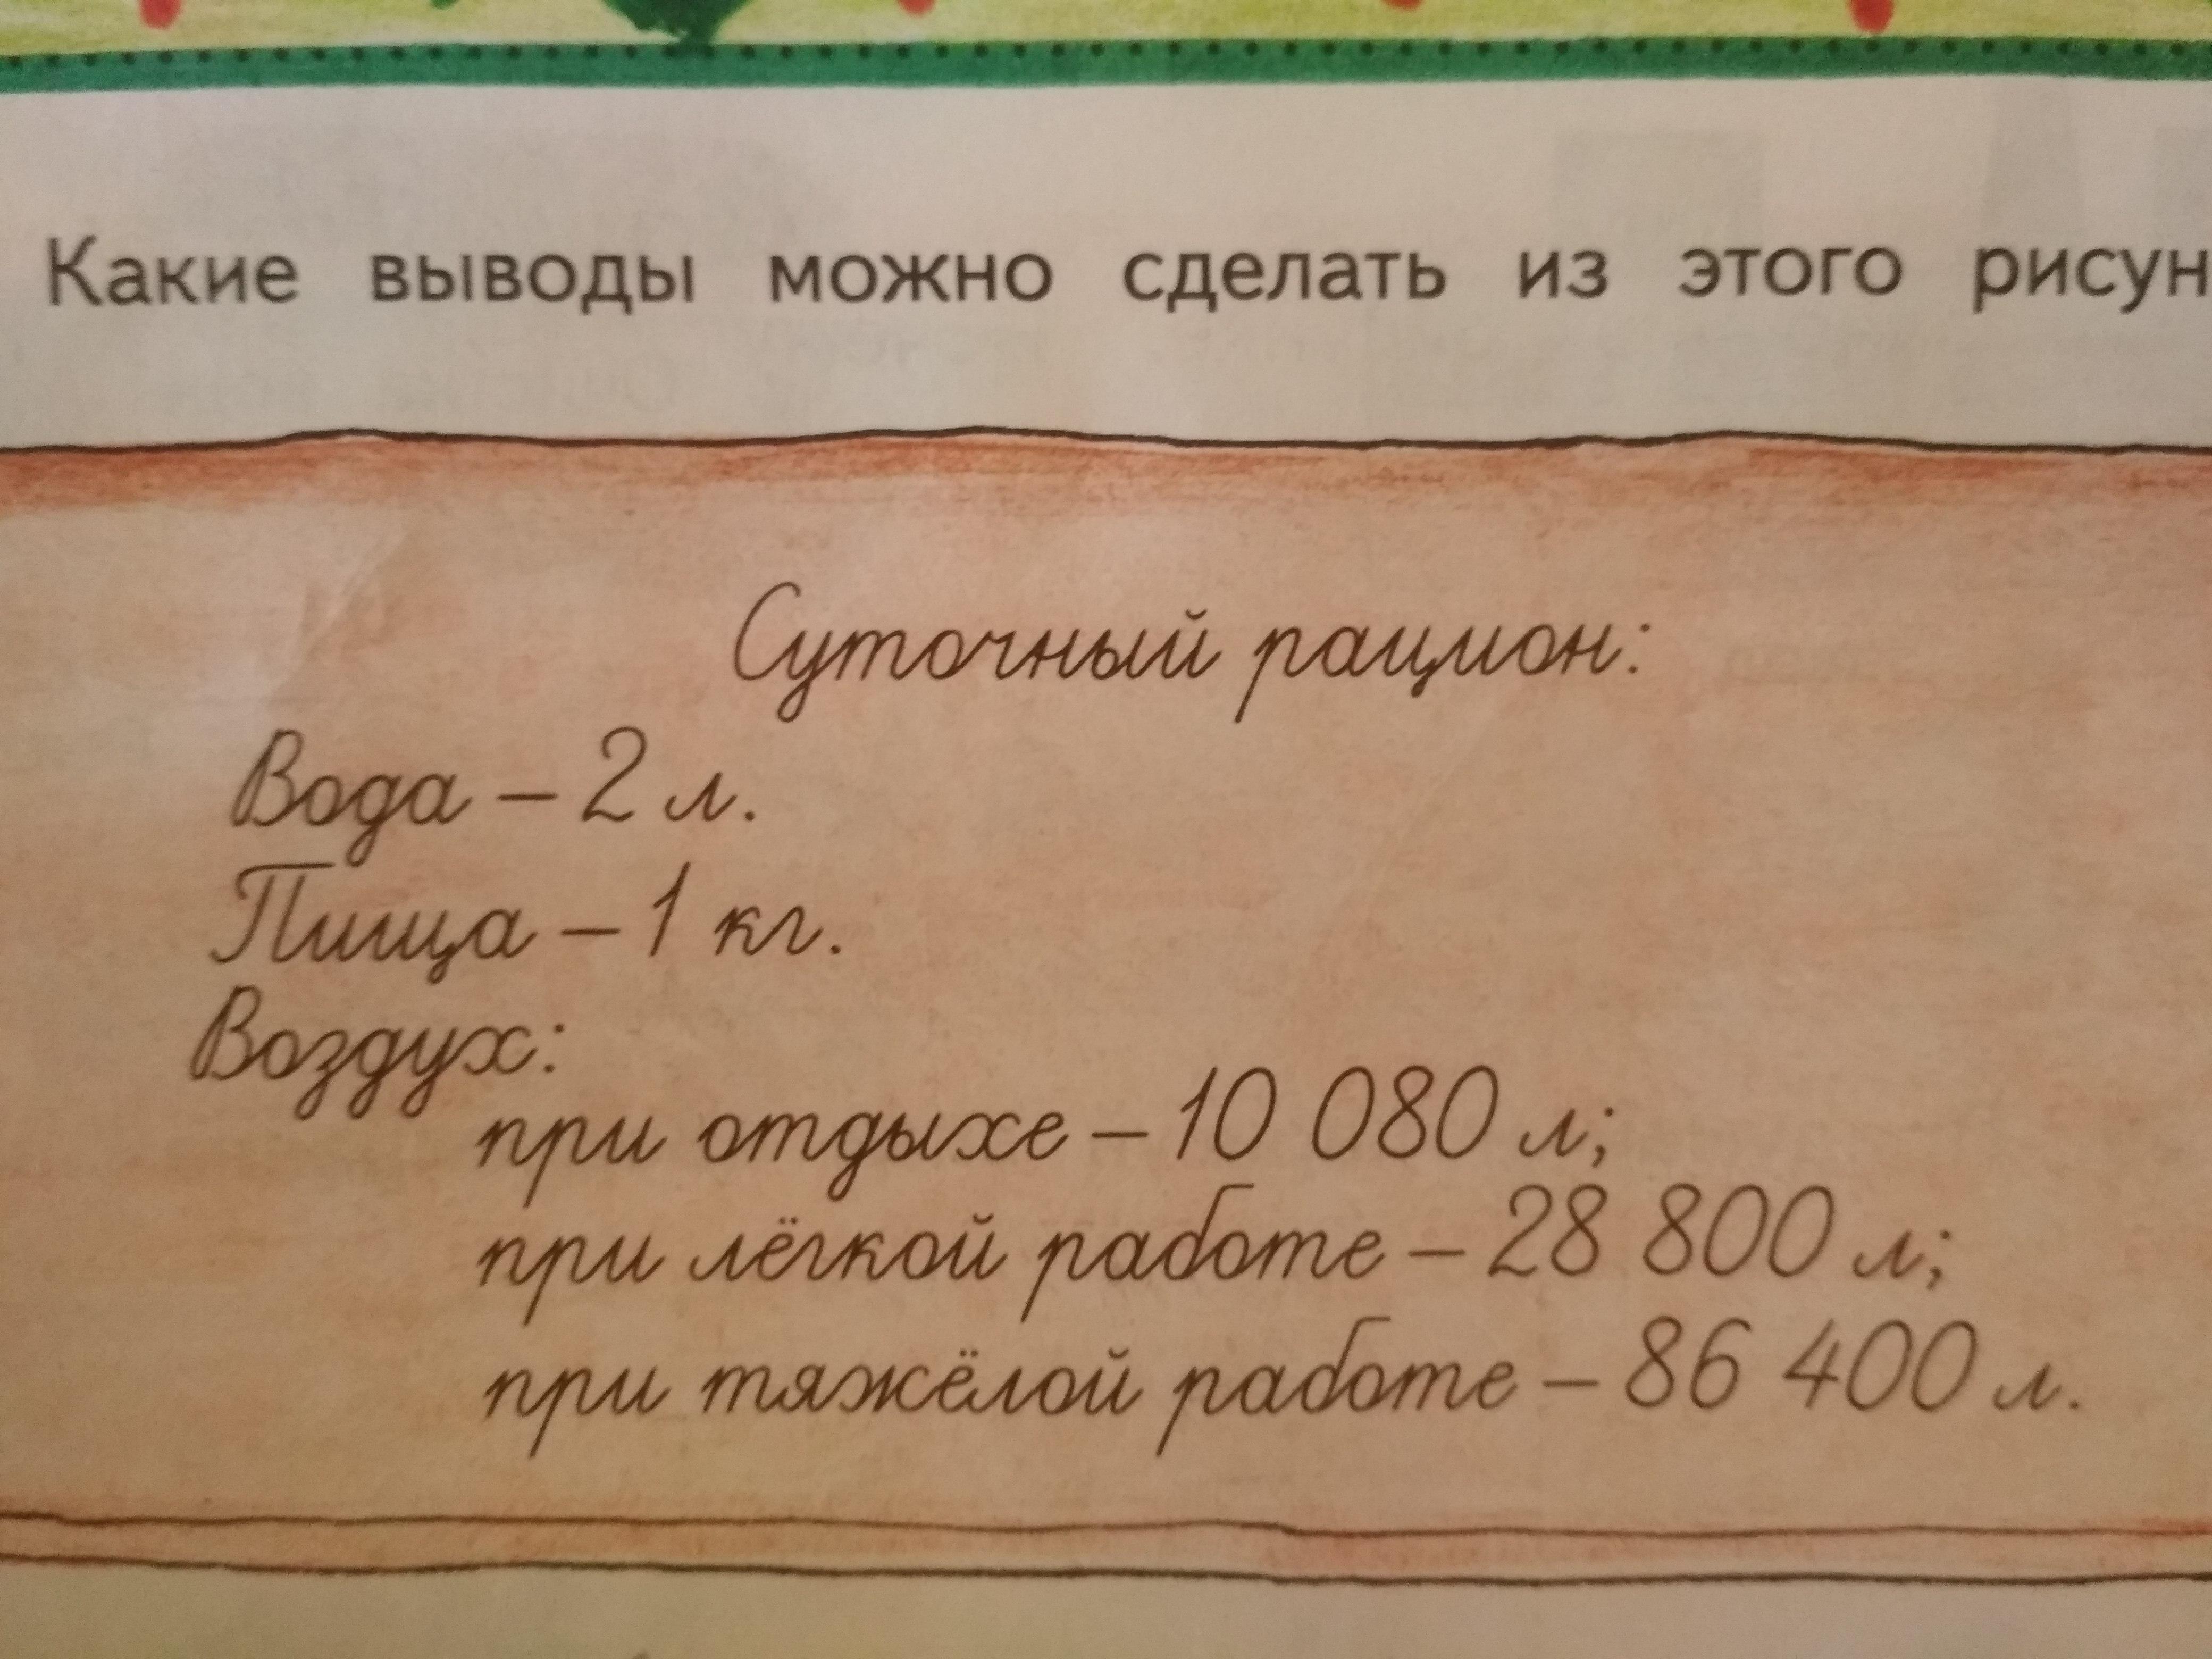 Какие выводы можно сделать из этого рисун
Суточный рацион:
Вода – 2 л.
Пища – 1 кг.
Воздух:
при отдыхе – 10 080 л;
при лёгкой работе – 28 800 л;
при тяжёлой работе – 86 400 л.